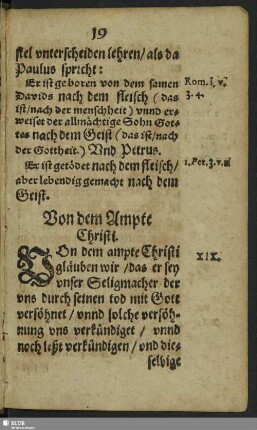 19
stel vnterscheiden lehren / als da
Paulus spricht:
Er ist geboren von dem samen
Rom. I. v.
Davids nach dem fleisch (das
3. 4.
ist / nach der menschheit) vnnd er-
weiset der allmächtige Sohn Got-
tes nach dem Geist (das ist / nach
der Gottheit.) Vnd Petrus.
Er ist getödet nach dem fleisch /
1. Pet. 3. v.
aber lebendig gemacht nach dem
Geist.
Von dem Ampte
Christi.
VOn dem ampte Christi
XIX.
gläuben wir / das er sey
vnser Seligmacher der
vns durch seinen tod mit Gott
versöhnet / vnnd solche versöh-
nung vns verkündiget / vnnd
noch leßt verkündigen / vnd die-
selbige
SLUB